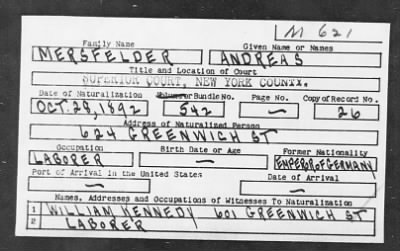 M 621
Family Name Given Name or Names
MERSFELDER ANDREAS
Title and Location of Court
SUPERIOR COURT, NEW YORK COUNTY.
Date of Naturalization Volume or Bundle No. Page No. Copy of Record No.
OCT. 28, 1892 542 — 26
Address of Naturalized Person
624 GREENWICH ST
Occupation Birth Date or Age Former Nationality
LABORER — EMPEROR of GERMANY
Port of Arrival in the United States Date of Arrival
— —
Names, Addresses and Occupations of Witnesses To Naturalization
1 WILLIAM KENNEDY 601 GREENWICH ST
2 LABORER